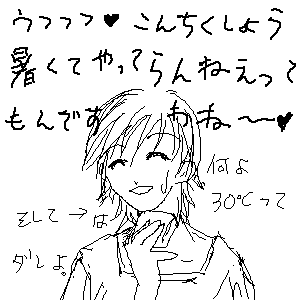 ウフフフ♥こんちくしょう
暑くてやってらんねえって
もんですわね〜〜♥
何よ
30℃って
そして→は
ダレよ。